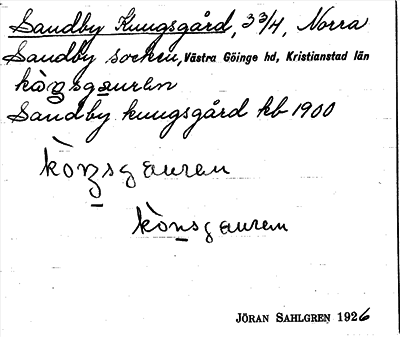 Sandby Kungsgård, 3 3/4, Norra
Sandby socken, Västra Göinge hd, Kristianstad län
kòŋsgauren
Sandby kungsgård kb 1900
kòŋsgauren
kònsgauren
JÖRAN SAHLGREN 1926